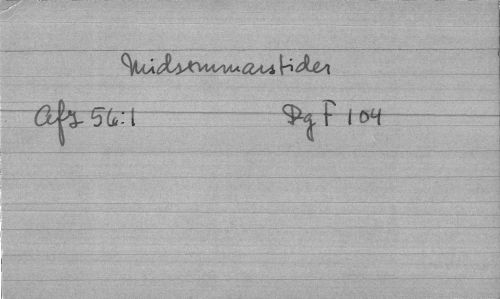 Midsommarstider
Afz 56:1 Rg F 104